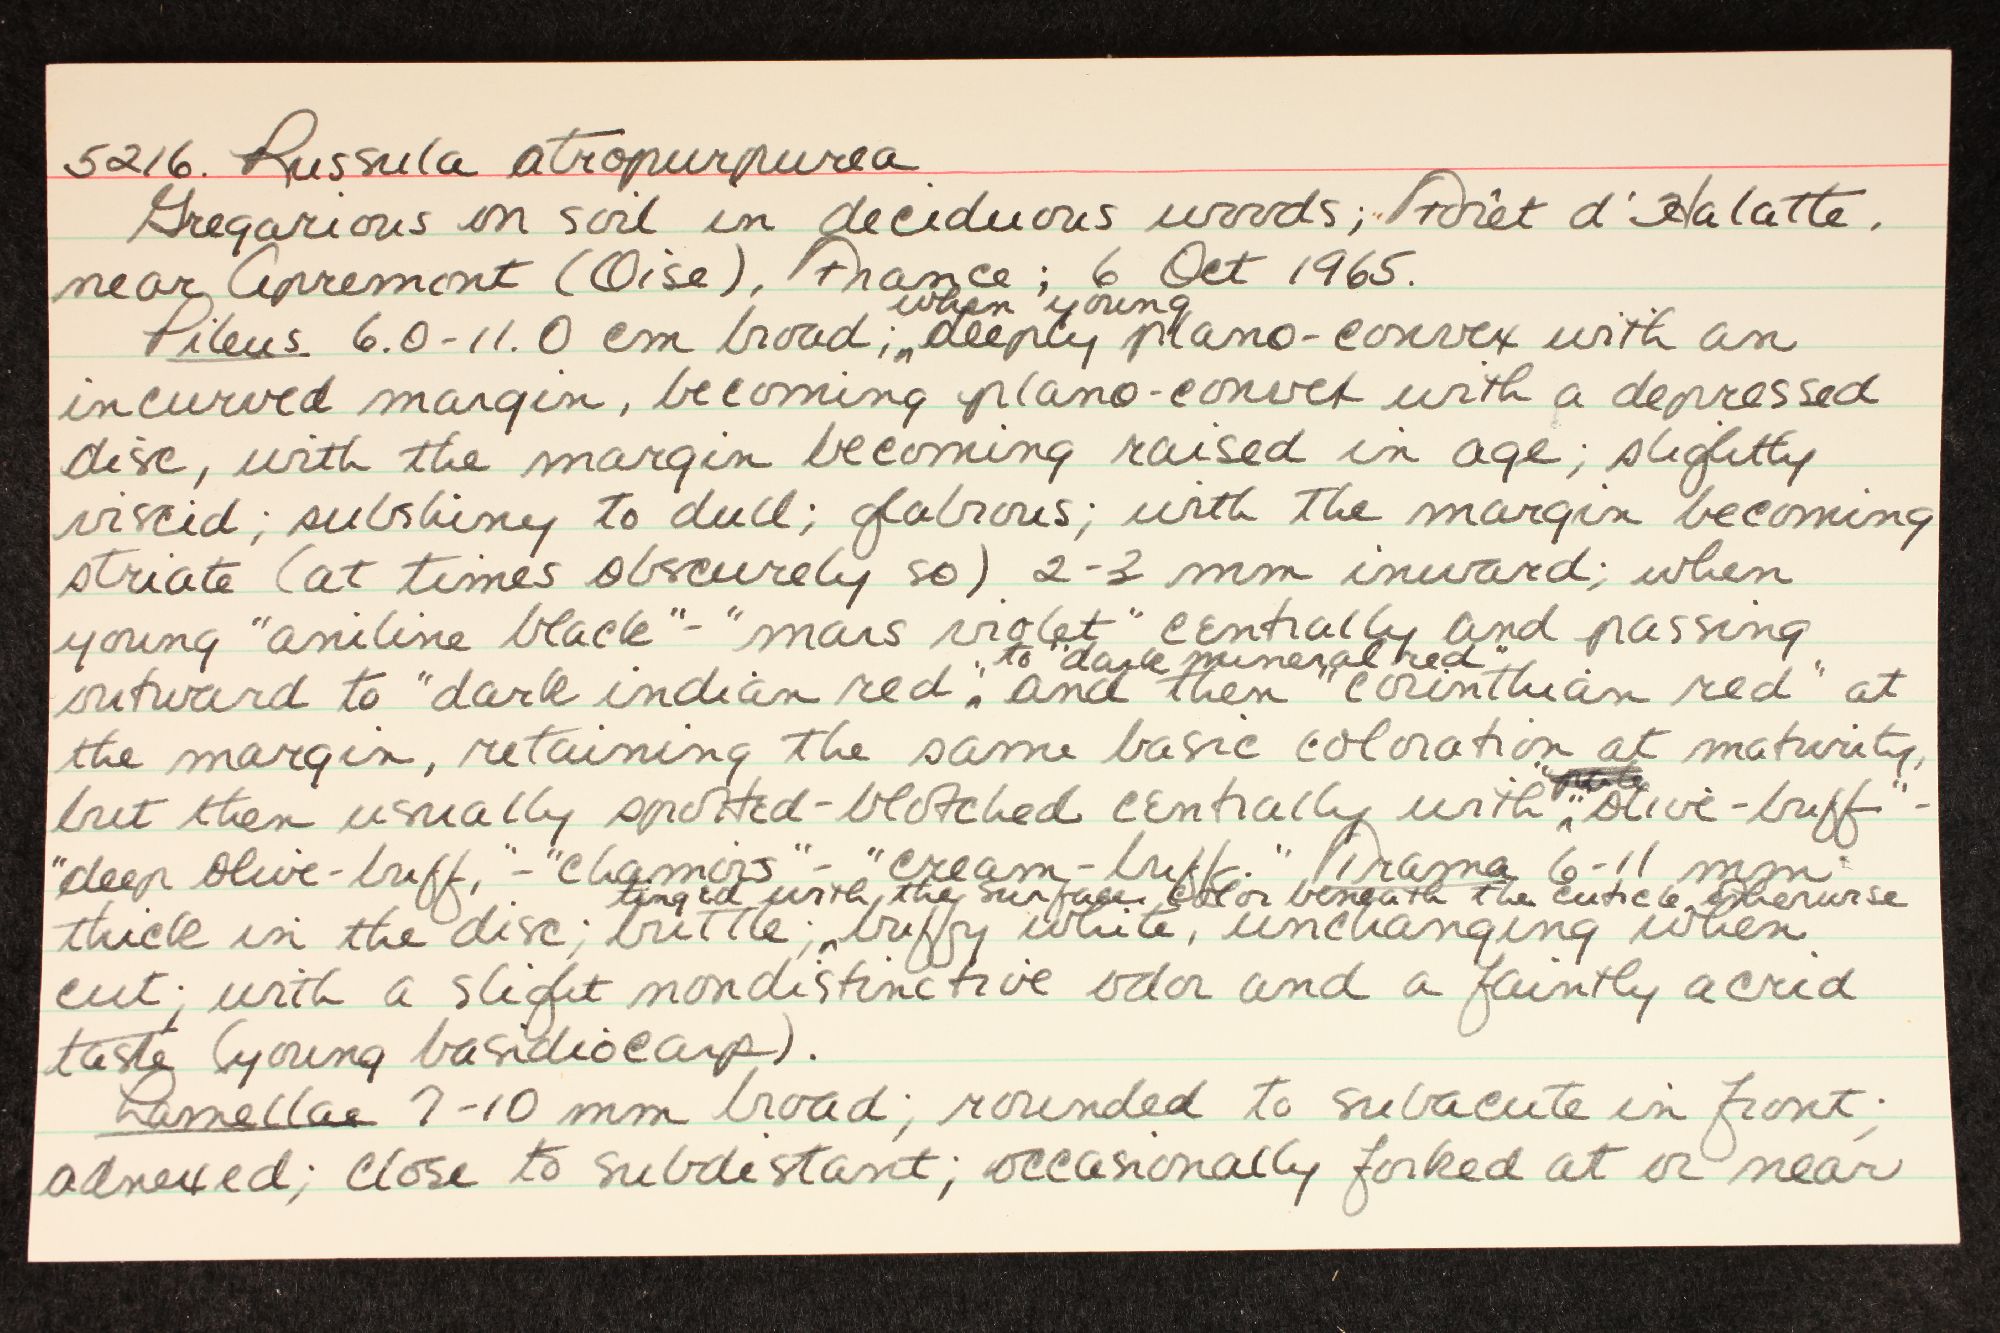 5216. Russula atropurpurea
Gregarious on soil in deciduous woods; Forêt d'Halatte,
near Apremont (Oise), France; 6 Oct 1965.
when young
Pileus 6.0-11.0 cm broad; deeply plano-convex with an
incurved margin, becoming plano-convex with a depressed
disc, with the margin becoming raised in age; slightly
viscid; subshiny to dull; glabrous; with the margin becoming
striate (at times obscurely so) 2-3 mm inward; when
young "aniline black"-"mars violet" centrally and passing
to "dark mineral red"
outward to "dark indian red", and then "corinthian red" at
the margin, retaining the same basic coloration at maturity,
but then usually spotted-blotched centrally with "olive-buff"-
"deep olive-buff,"-"chamois"-"cream-buff." Trama 6-11 mm
tinged with the surface color beneath the cuticle, otherwise
thick in the disc; brittle; buffy white, unchanging when
cut; with a slight nondistinctive odor and a faintly acrid
taste (young basidiocarp).
Lamellae 7-10 mm broad; rounded to subacute in front;
adnexed; close to subdistant; occasionally forked at or near